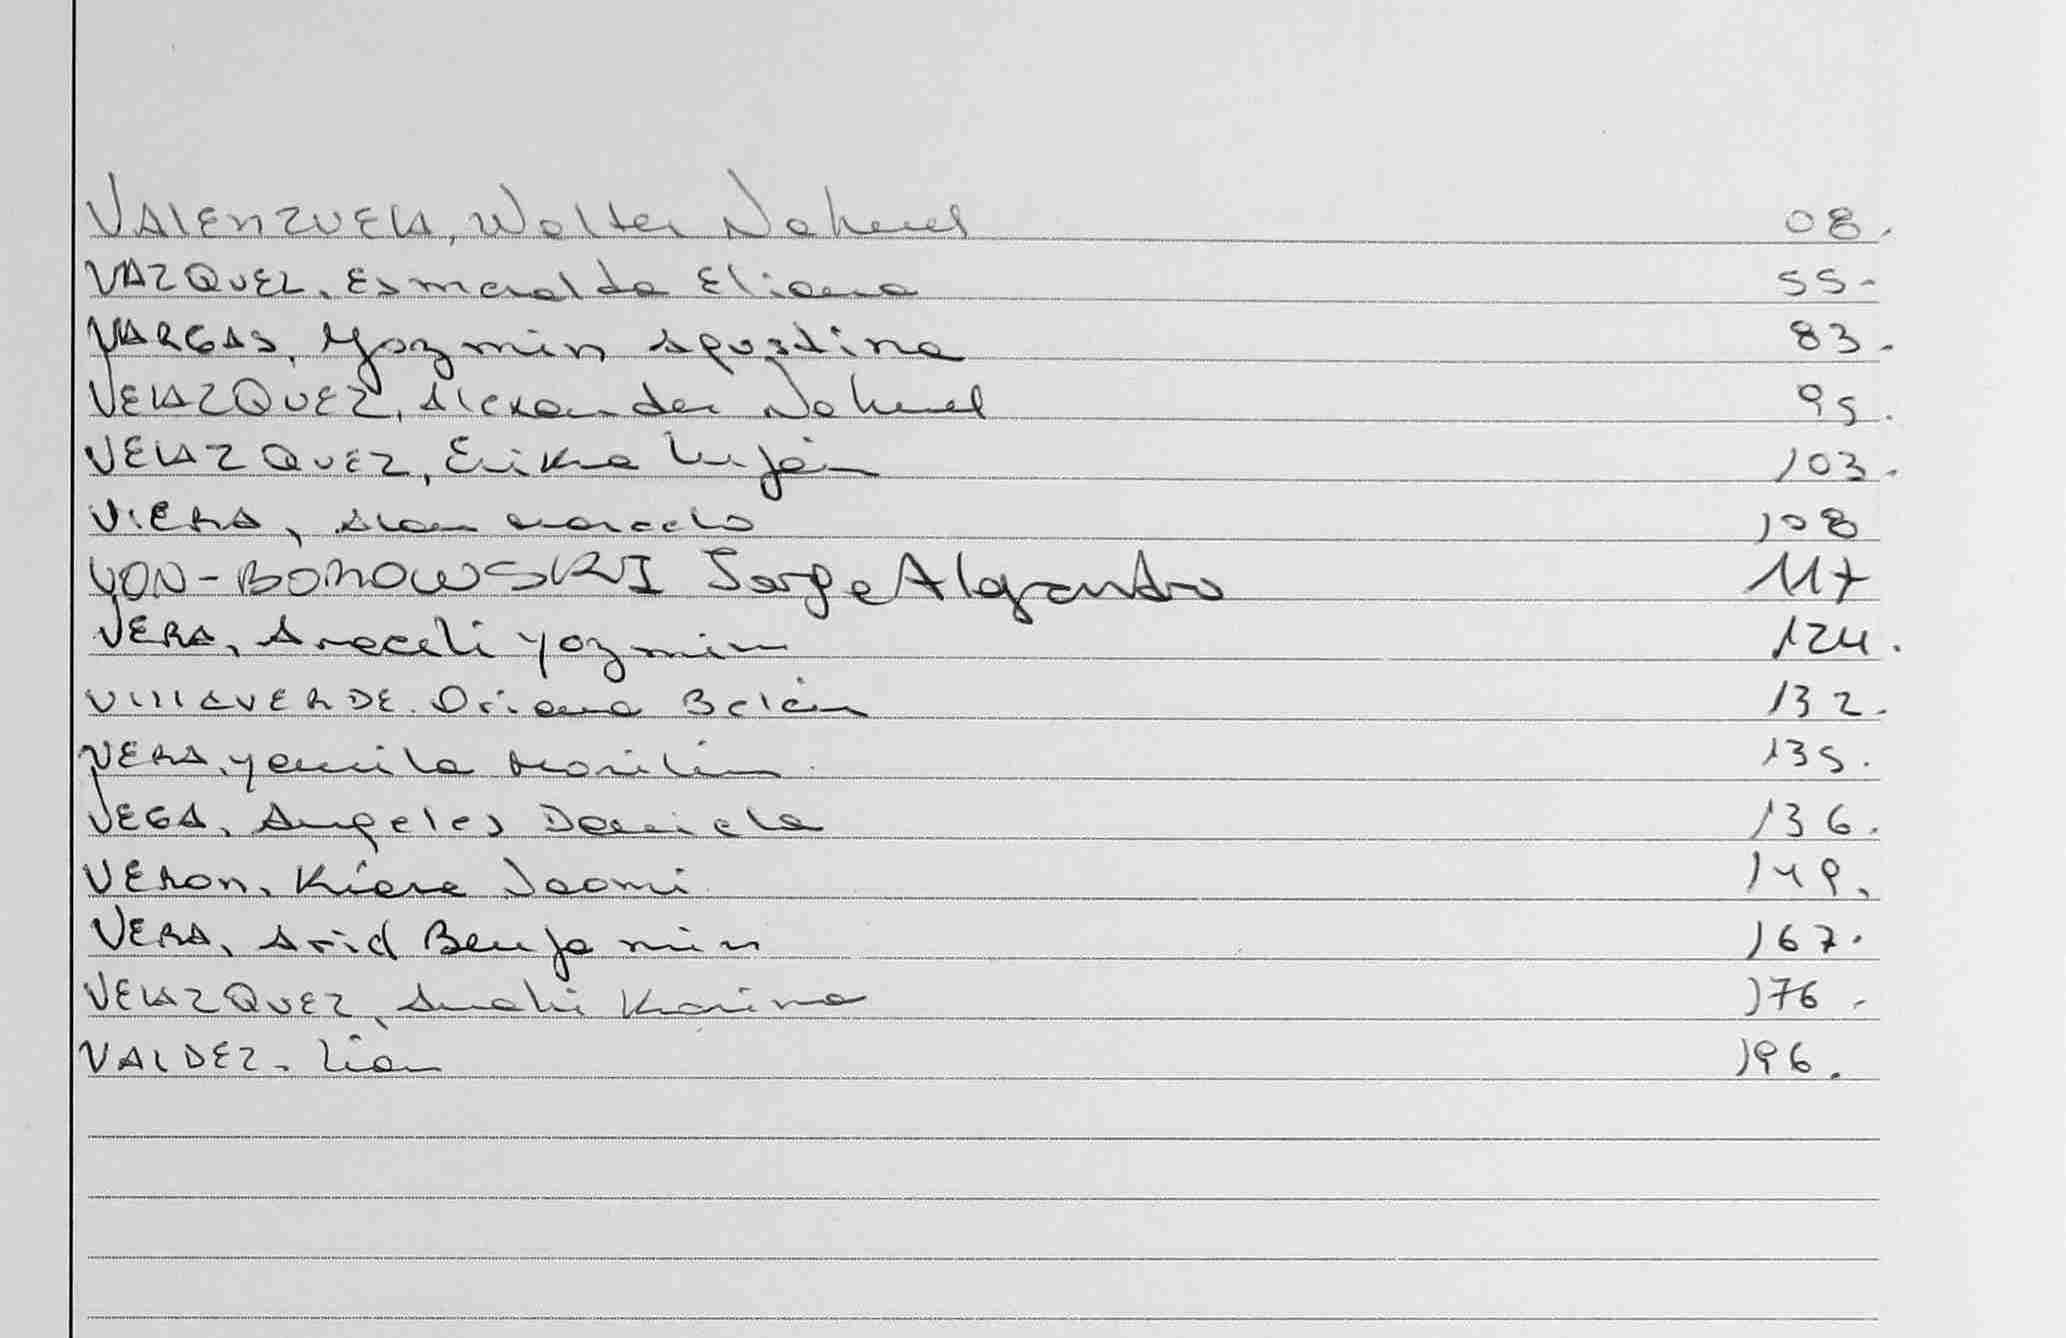 VALENZUELA, Walter Nahuel 08.
VAZQUEZ, Esmeralda Eliana 55-
VARGAS, Yazmin Agustina 83.
VELAZQUEZ, Alexander Nahuel 95.
VELAZQUEZ, Erika Luján 103.
VIERA, Alan Marcelo 108
VON-BOROWSKI Jorge Alejandro 117
VERA, Araceli Yazmin 124.
VILLAVERDE. Oriana Belén 132.
VERA, Yamila Marilin 135.
VEGA, Angeles Daniela 136.
VERON, Kiara Naomi 149.
VERA, Benjamin 167.
VELAZQUEZ, Anahi Karina 176.
VALDEZ. Lian 196.